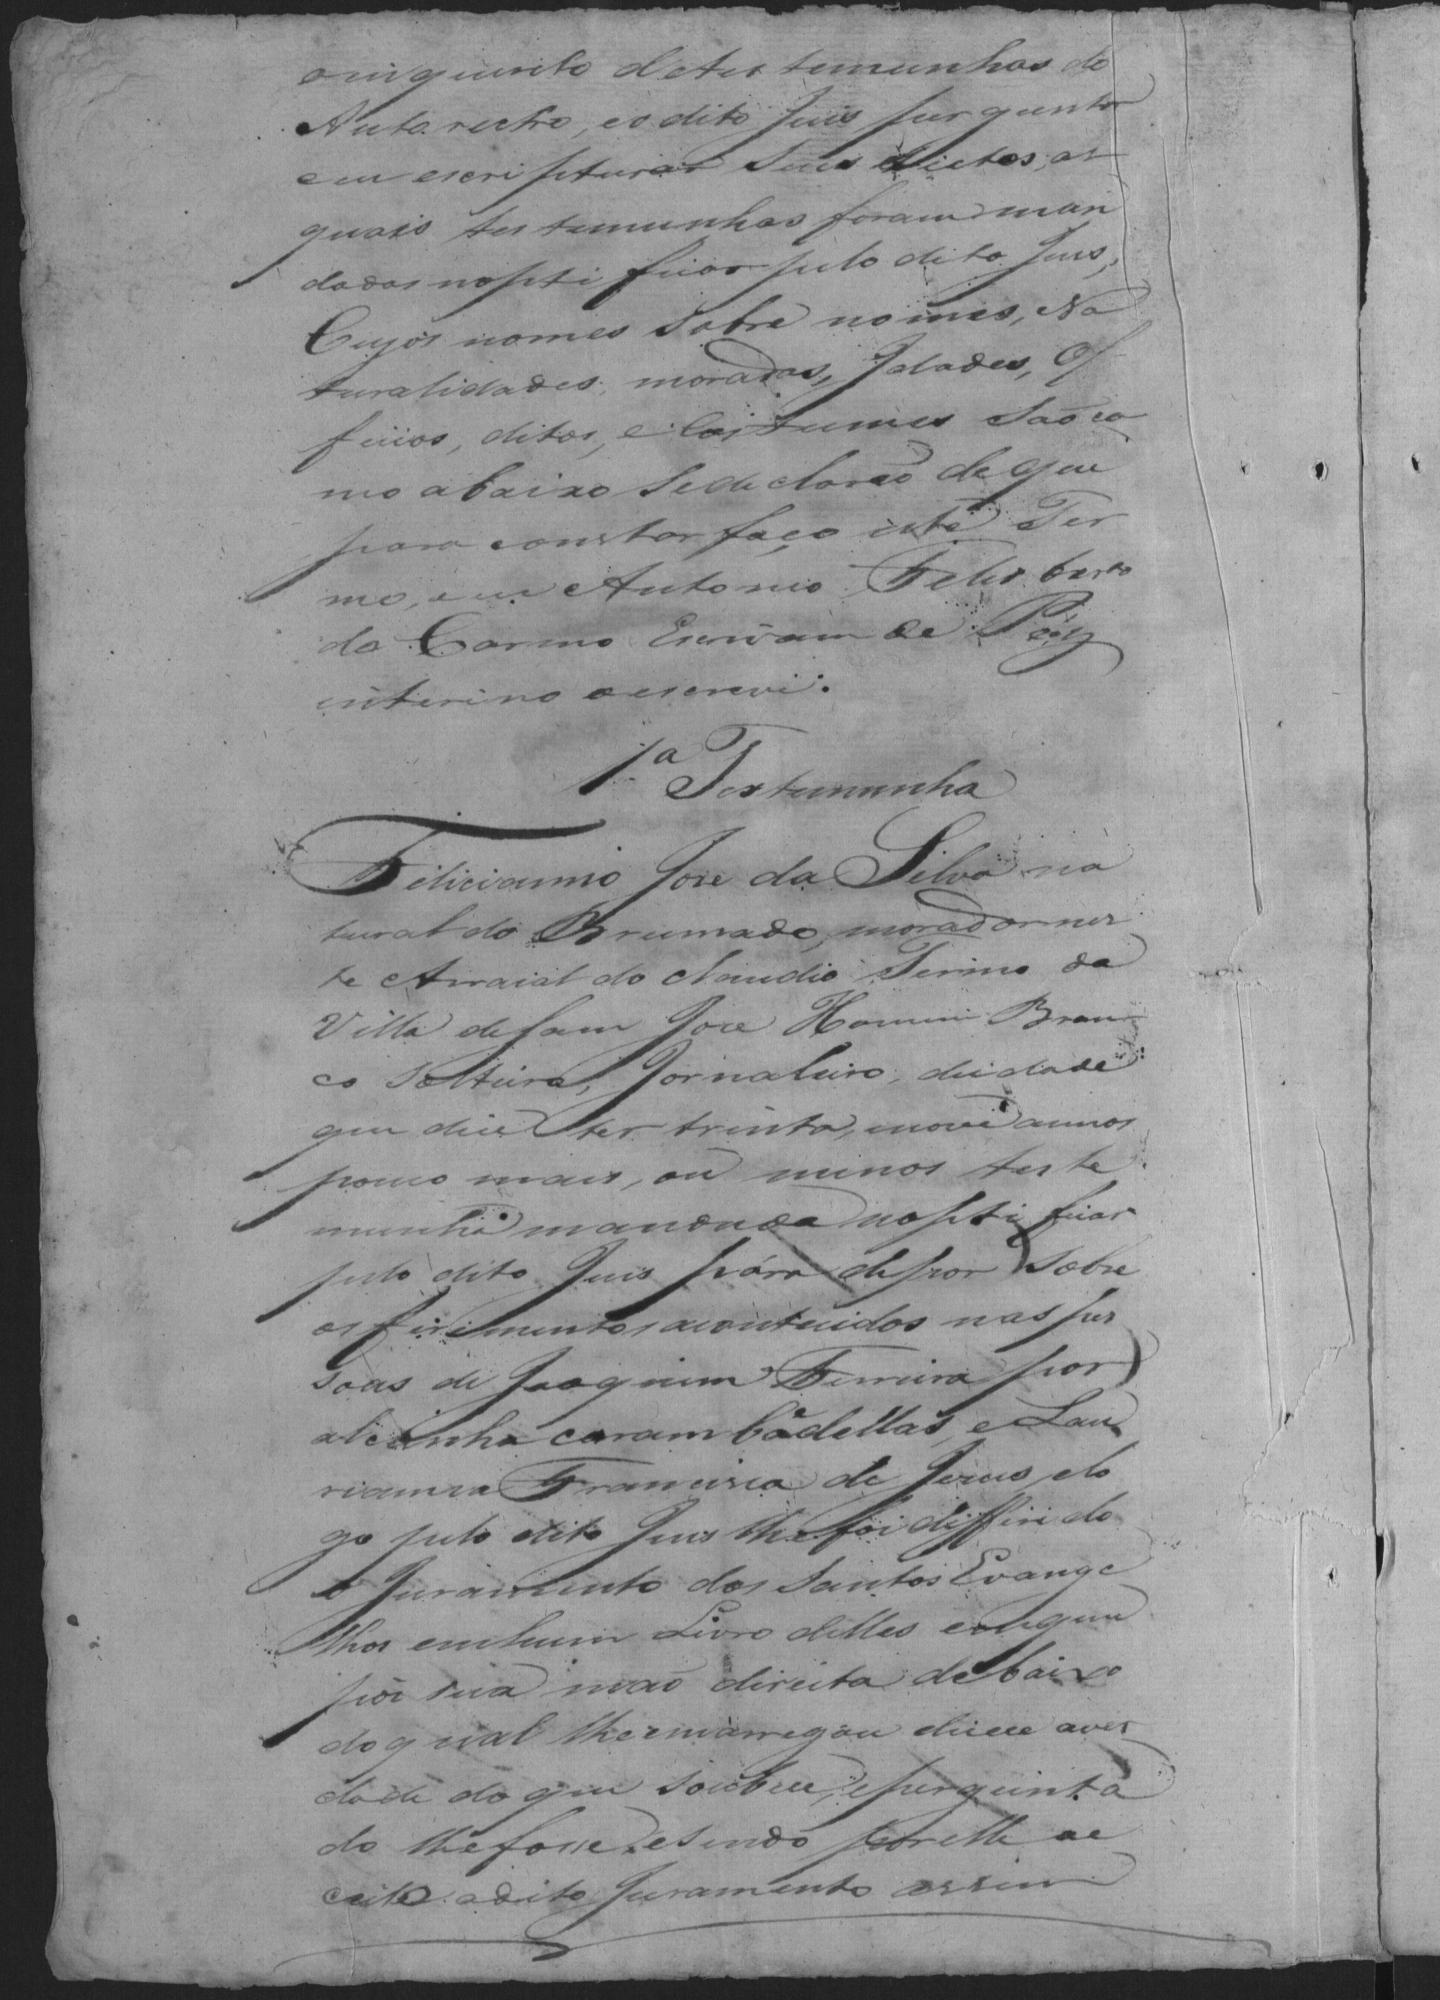 o inquerito de testemunhas do
Auto retro, e o dito Juis perguntar
e eu escripturar seus dictos, as
quais testemunhas foram man
dadas nopti ficar pelo dito Juis,
Cujos nomes sobre nomes, Na
turalidades, moradas, Idades, Of
ficios, ditos, e Costumes são co
mo abaixo se declarão de que
para constar faço este Ter
mo, eu Antonio Felisberto
do Carmo Escrivam de Páz
interino o escrevi.
1ª Testemunha
Felicianno Jose da Silva na
tural do Brumado, morador nes
te Arraial do Claudio Termo da
Villa de Sam Jose Homem Bran
co Solteiro, Jornaleiro, de idade
que dice ter trinta, e nove annos
pouco mais, ou menos teste
munha mandada nopti ficar
pelo dito Juis pára depor sobre
os ferimentos acontecidos nas pes
soas de Joaquim Ferreira por
alcunha carambadellas, e Lau
rianna Francisca de Jezus e lo
go pelo dito Juis lhe foi differido
o Juramento dos Santos Evange
lhos em hum Livro delles em que
pôs sua mão direita debaixo
do qual lhe emcarregou dicece a ver
dade do que soubece, e pergunta
do lhe fosse. e sendo por elle ac
ceito o dito Juramento assim